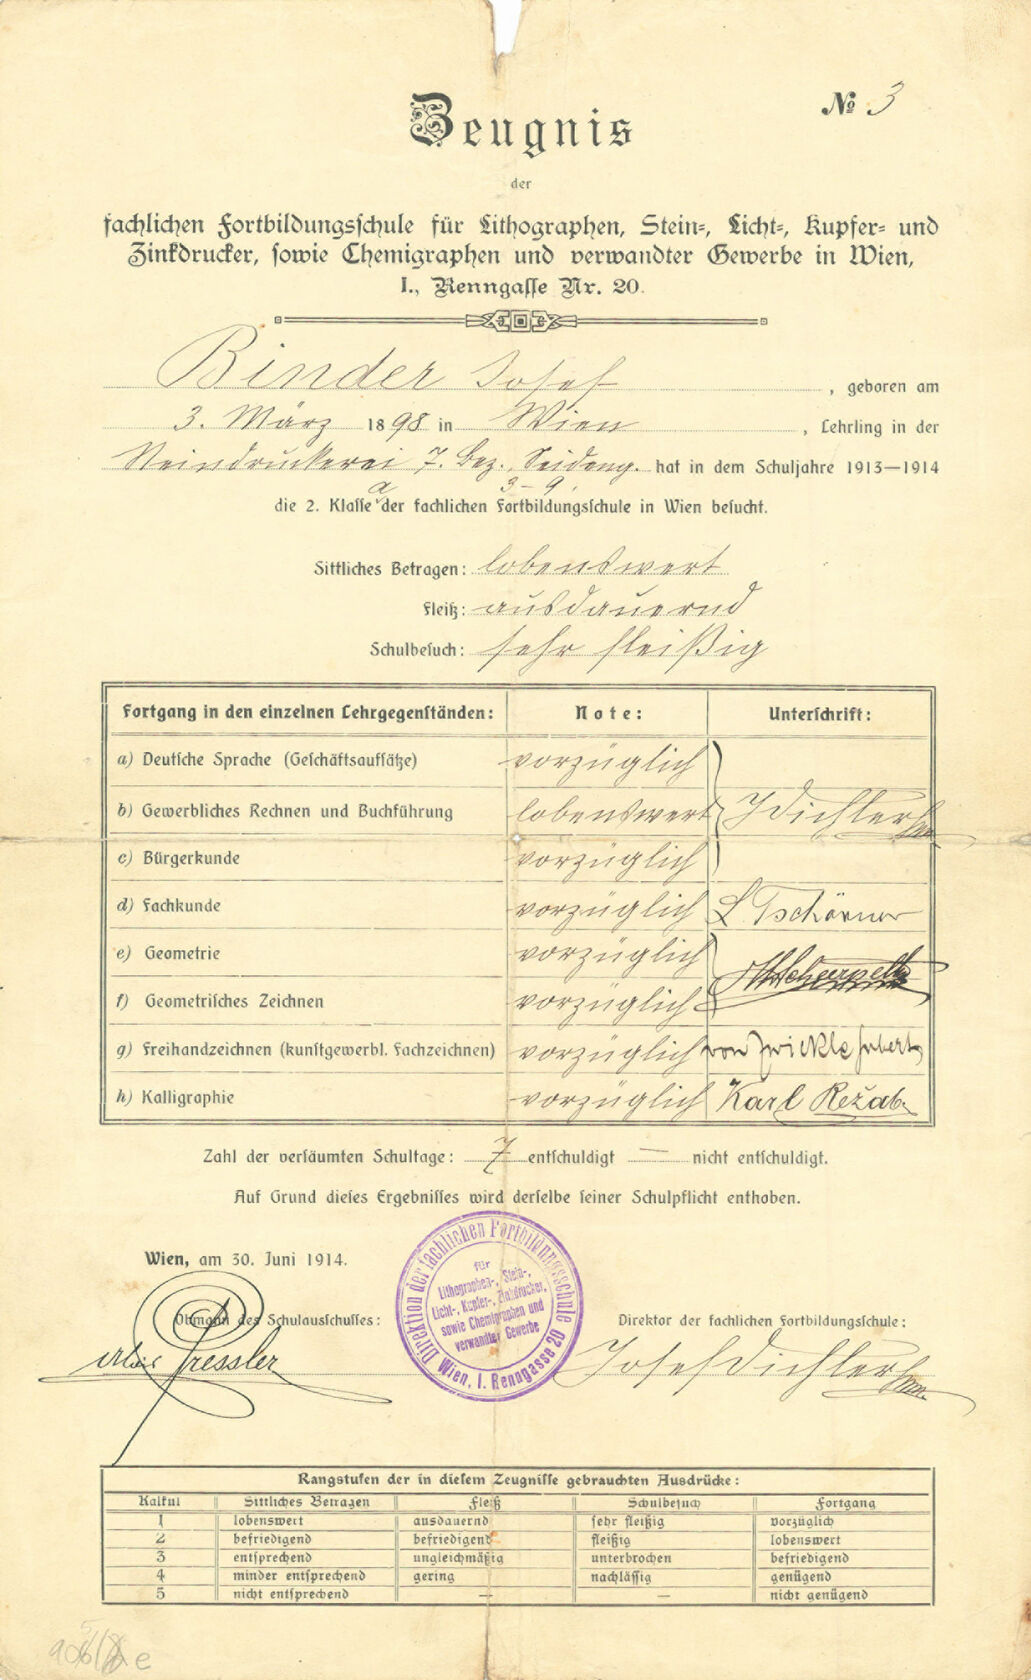 № 3
Zeugnis
der
fachlichen Fortbildungsschule für Lithographen, Stein-, Licht-, Kupfer- und
Zinkdrucker, sowie Chemigraphen und verwandter Gewerbe in Wien,
I., Renngasse Nr. 20.
Binder Josef, geboren am
3. März 1898 in Wien, Lehrling in der
Steindruckerei 7. Bez., Seideng. hat in dem Schuljahre 1913—1914
3-9.
die 2. Klasse a der fachlichen Fortbildungsschule in Wien besucht.
Sittliches Betragen: lobenswert
Fleiß: ausdauernd
Schulbesuch: sehr fleißig
Fortgang in den einzelnen Lehrgegenständen: Note: Unterschrift:
a) Deutsche Sprache (Geschäftsaufsätze) vorzüglich
b) Gewerbliches Rechnen und Buchführung lobenswert JDichler
c) Bürgerkunde vorzüglich
d) Fachkunde vorzüglich L. Tschörner
e) Geometrie vorzüglich
f) Geometrisches Zeichnen vorzüglich
g) Freihandzeichnen (kunstgewerbl. Fachzeichnen) vorzüglich von Zwickle
h) Kalligraphie vorzüglich Karl Režab
Zahl der versäumten Schultage: 7 entschuldigt — nicht entschuldigt.
Auf Grund dieses Ergebnisses wird derselbe seiner Schulpflicht enthoben.
Wien, am 30. Juni 1914.
Direktion der fachlichen Fortbildungsschule
für
Lithographen-, Stein-,
Licht-, Kupfer-, Zinkdrucker,
sowie Chemigraphen und
verwandter Gewerbe
Wien, I. Renngasse 20
Obmann des Schulausschusses:
Direktor der fachlichen Fortbildungsschule:
Pressler
Josef Dichler
Rangstufen der in diesem Zeugnisse gebrauchten Ausdrücke:
Kalkul Sittliches Betragen Fleiß Schulbesuch Fortgang
1 lobenswert ausdauernd sehr fleißig vorzüglich
2 befriedigend befriedigend fleißig lobenswert
3 entsprechend ungleichmäßig unterbrochen befriedigend
4 minder entsprechend gering nachlässig genügend
5 nicht entsprechend — — nicht genügend